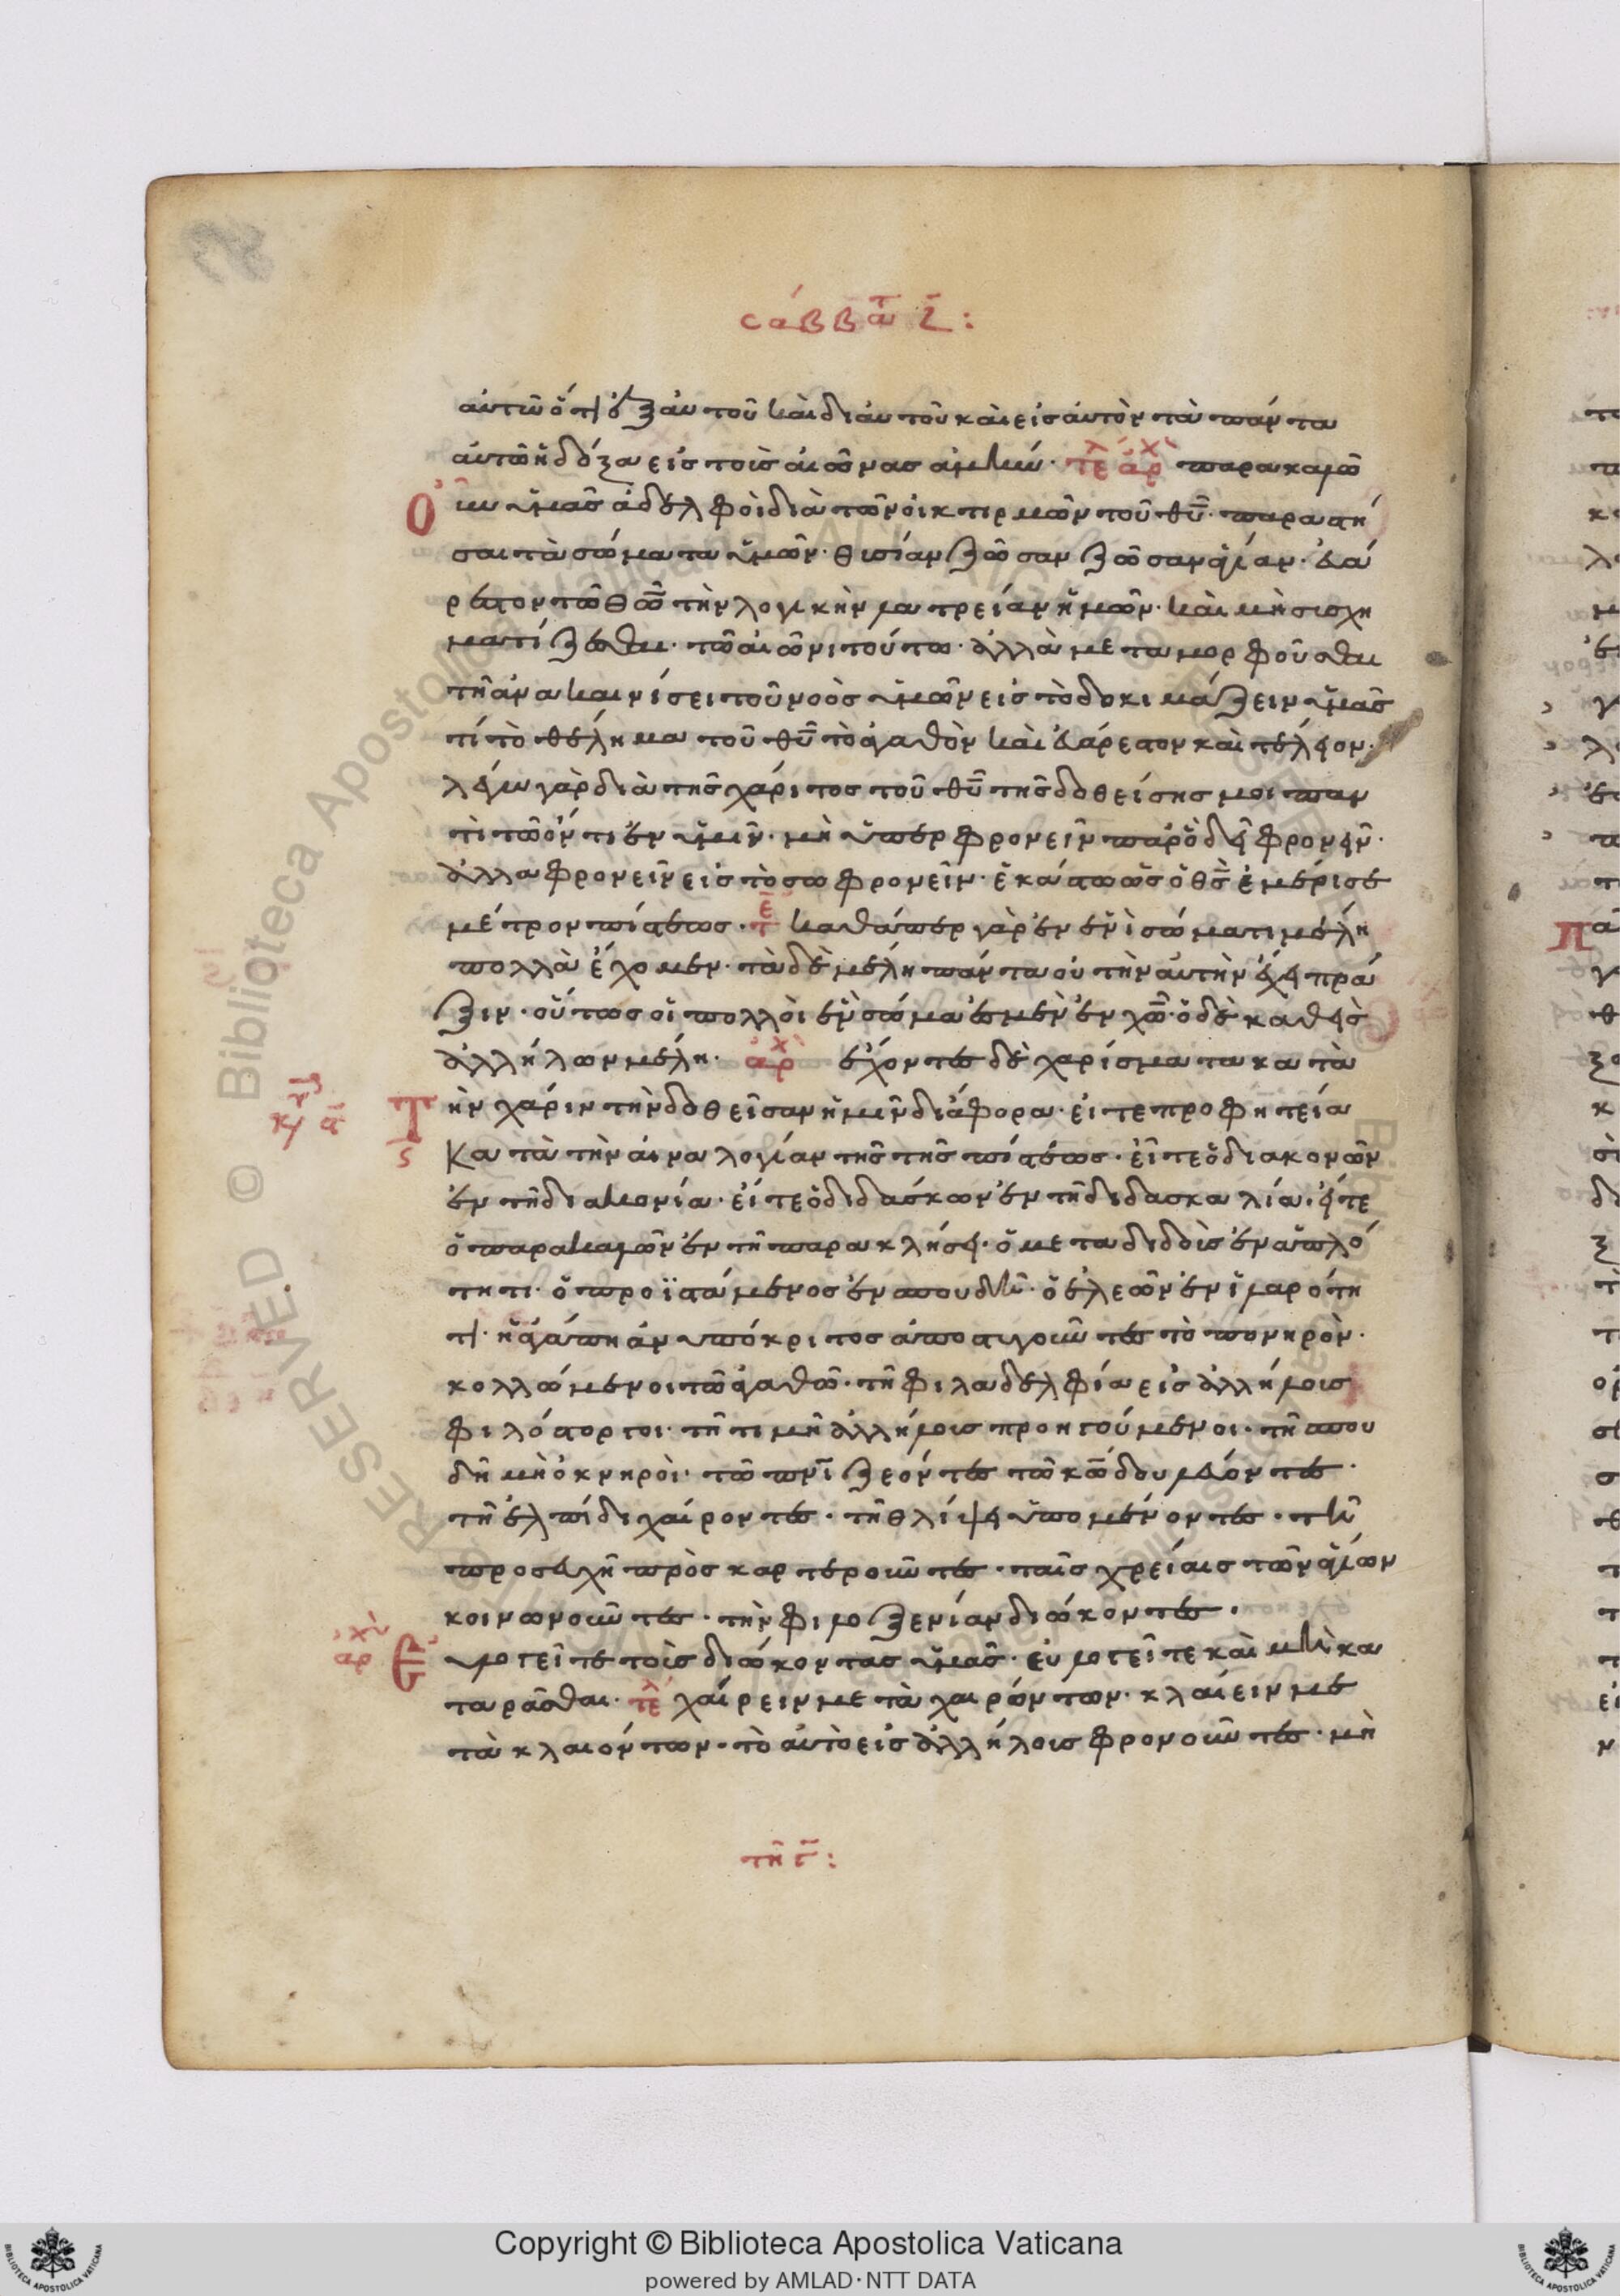 σάββατ ζ:
αυτῶ ὅτι ἐξ αυτοῦ καὶ δι αυτοῦ καὶ εἰς αὐτὸν τὰ πάντα
αὐτῶ ἡ δόξα εἰς τοὺς αἰῶνας ἀμήν· τελ ἀρχ παρακαλῶ
οὖν ὑμᾶς ἀδελφοὶ διὰ τῶν οἰκτιρμῶν τοῦ θυ· παραστή
σαι τὰ σώματα ὑμῶν· θυσίαν ζῶσαν ζῶσαν ἁγίαν· εὐά
ρεστον τῶ θῶ τὴν λογικὴν λατρείαν ἡμῶν· καὶ μὴ συσχη
ματίζεσθαι· τῶ αἰῶνι τούτω· ἀλλὰ μεταμορφοῦσθαι
τῆ ἀνακαινίσει τοῦ νοὸς ὑμῶν εἰς τὸ δοκιμάζειν ὑμᾶς
τί τὸ θέλημα τοῦ θυ τὸ ἀγαθὸν καὶ εὐάρεστον καὶ τέλειον·
λέγω γὰρ διὰ τῆς χάριτος τοῦ θυ τῆς δοθείσης μοι παν
τὶ τῶ ὄντι ἐν ὑμῖν· μὴ ὑπερφρονεῖν παρ ὃ δεῖ φρονεῖν·
ἀλλα φρονεῖν εἰς τὸ σωφρονεῖν· ἑκάστω ὡς ὁ θς ἐμέρισε
μέτρον πίστεως· καθάπερ γὰρ ἐν ἑνὶ σώματι μέλη
πολλὰ ἔχομεν· τὰ δὲ μέλη πάντα οὐ τὴν αὐτὴν ἔχει πρά
ξιν· οὕτως οἱ πολλοὶ ἓν σῶμα ἐσμὲν ἐν χῶ· ὁ δὲ καθεὶς
ἀλλήλων μέλη· ἀρχ ἔχοντες δὲ χαρίσματα κατὰ
Την χάριν τὴν δοθεῖσαν ἡμῖν διάφορα· εἴτε προφητεία
κατὰ τὴν ἀναλογίαν τῆς τῆς πίστεως· εἴτε ὁ διακονῶν
ἐν τῆ διακονία· εἴτε ὁ διδάσκων ἐν τῆ διδασκαλία· εἴτε
ὁ παρακαλῶν ἐν τῆ παρακλήσει· ὁ μεταδιδοὺς ἐν ἁπλό
τητι· ὁ προϊστάμενος ἐν σπουδῆ· ὁ ἐλεῶν ἐν ἱλαρότη
τι· ἡ ἀγάπη ἀνυπόκριτος ἀποστυγοῦντες τὸ πονηρὸν·
κολλώμενοι τῶ ἀγαθῶ· τῆ φιλαδελφία εἰς ἀλλήλους
φιλόστοργοι· τῆ τιμῆ ἀλλήλοις προηγούμενοι· τῆ σπου
δῆ μὴ ὀκνηροὶ· τῶ πνι ζέοντες τῶ κω δουλεύοντες·
τῆ ἐλπίδι χαίροντες· τῆ θλίψει ὑπομένοντες· τῆ
προσευχῆ προσκαρτεροῦντες· ταῖς χρείαις τῶν ἁγίων
κοινωνοῦντες· τὴν φιλοξενίαν διώκοντες·
ἀρχ Ευλογεῖτε τοὺς διώκοντας ὑμᾶς· εὐλογεῖτε καὶ μὴ κα
ταρᾶσθαι· τελ χαίρειν μετὰ χαιρόντων· κλαίειν με
τὰ κλαιόντων· τὸ αὐτὸ εἰς ἀλλήλους φρονοῦντες· μὴ
τῆ γ:
Copyright © Biblioteca Apostolica Vaticana
powered by AMLAD·NTT DATA